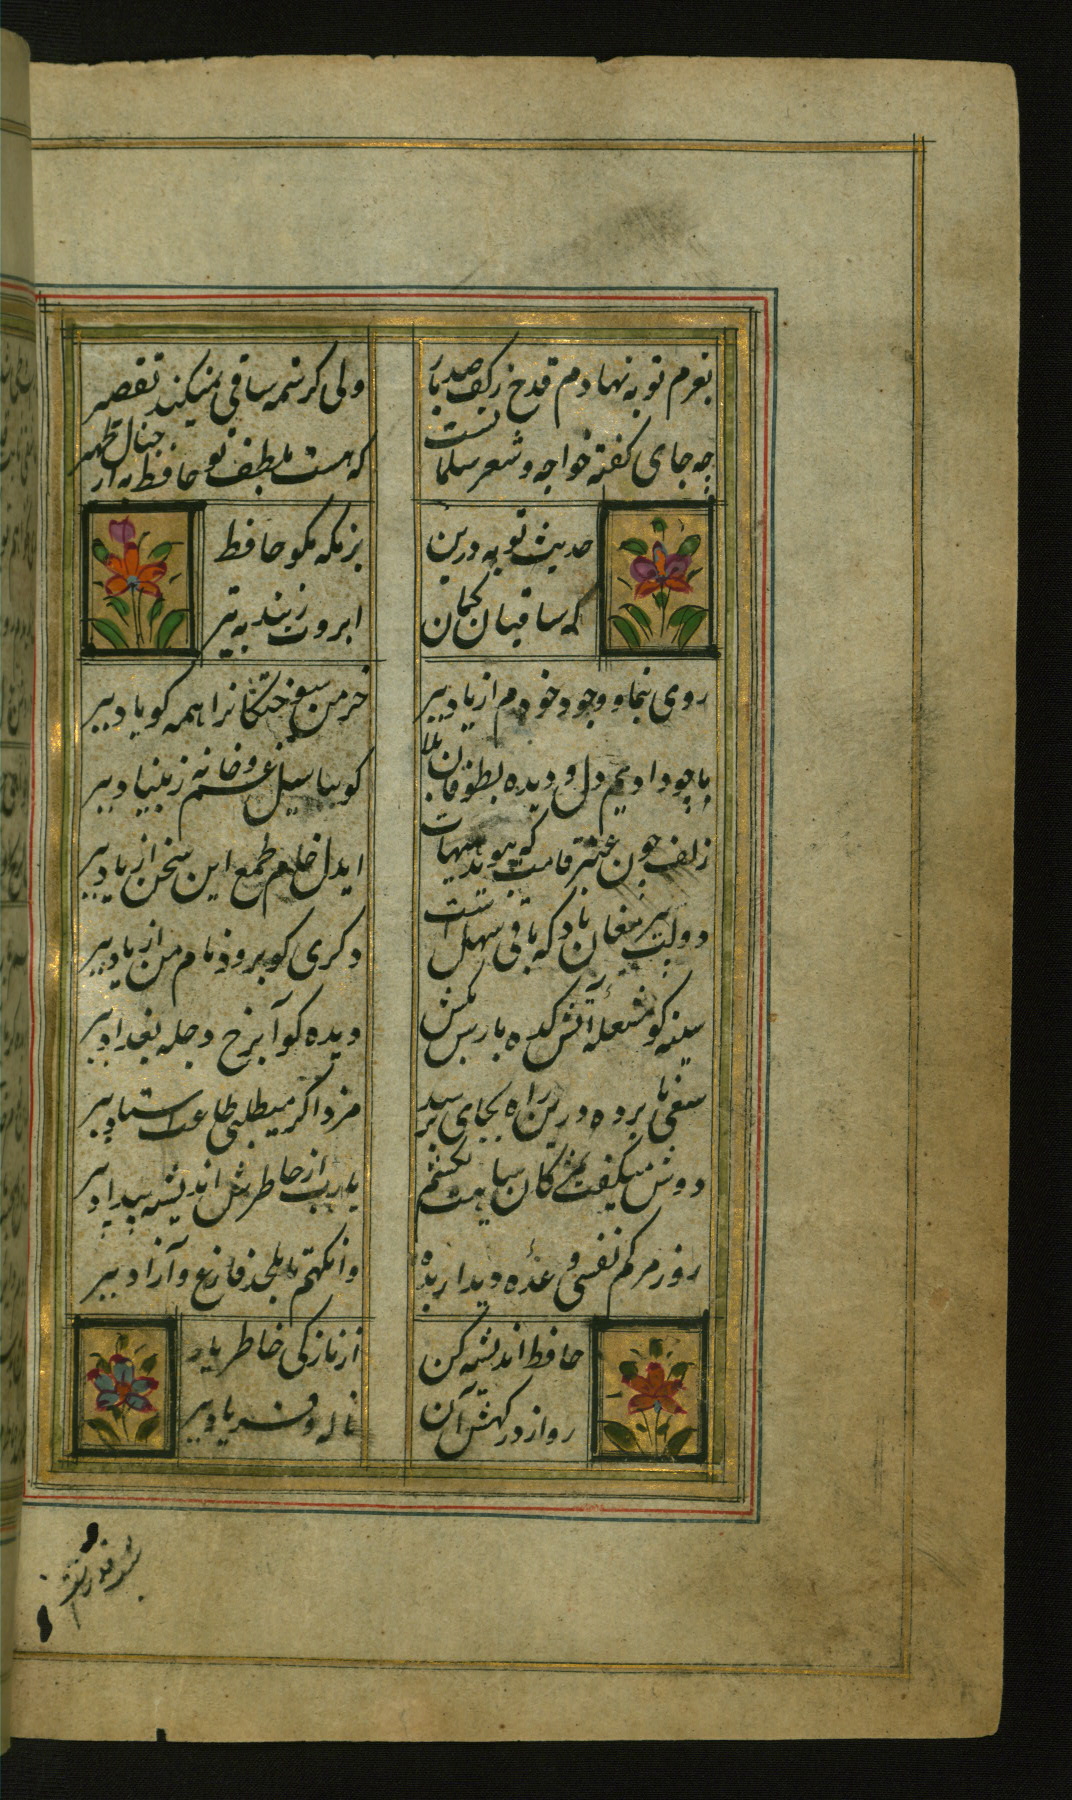 بعزم توبه نهادم قدح زکف صد بار
ولی کرشمه ساقی نمیکند تقصیر
چه جای کفته خواجه و شعر سلمانست
که هست بلطف تو حافظ به از خیال ظهیر
حدیث توبه درین
بزمکه مکو حافظ
که ساقیان کمان
ابروت زنند به تیر
روی بنما و وجود خودم از یاد ببر
خرمن سوختکانرا همه کو باد ببر
ما چو دادیم دل و دیده بطوفان بلا
کو بیا سیل غم و خانه ز بنیاد ببر
زلف چون عنبر خامت که ببوید هیهات
ایدل خام طمع این سخن از یاد ببر
دولت پیر مغان باد که باقی سهل است
دکری کو برو و نام من از یاد ببر
سینه کو شعله آتش کده پارس بکش
دیده کو آب رخ دجله بغداد ببر
سعی نا برده درین راه بجای نرسید
مزد اکر میطلبی طاعت استاد ببر
دوش میکفت بمژکان سیاهت بکشم
یارب از خاطرش اندیشه بیداد ببر
روز مرکم نفسی وعدۀ دیدار بده
وانکهم تا بلحد فارغ و آزاد ببر
حافظ اندیشه کن
از نازکی خاطر یار
رو از درکهش آن
ناله و فریاد ببر